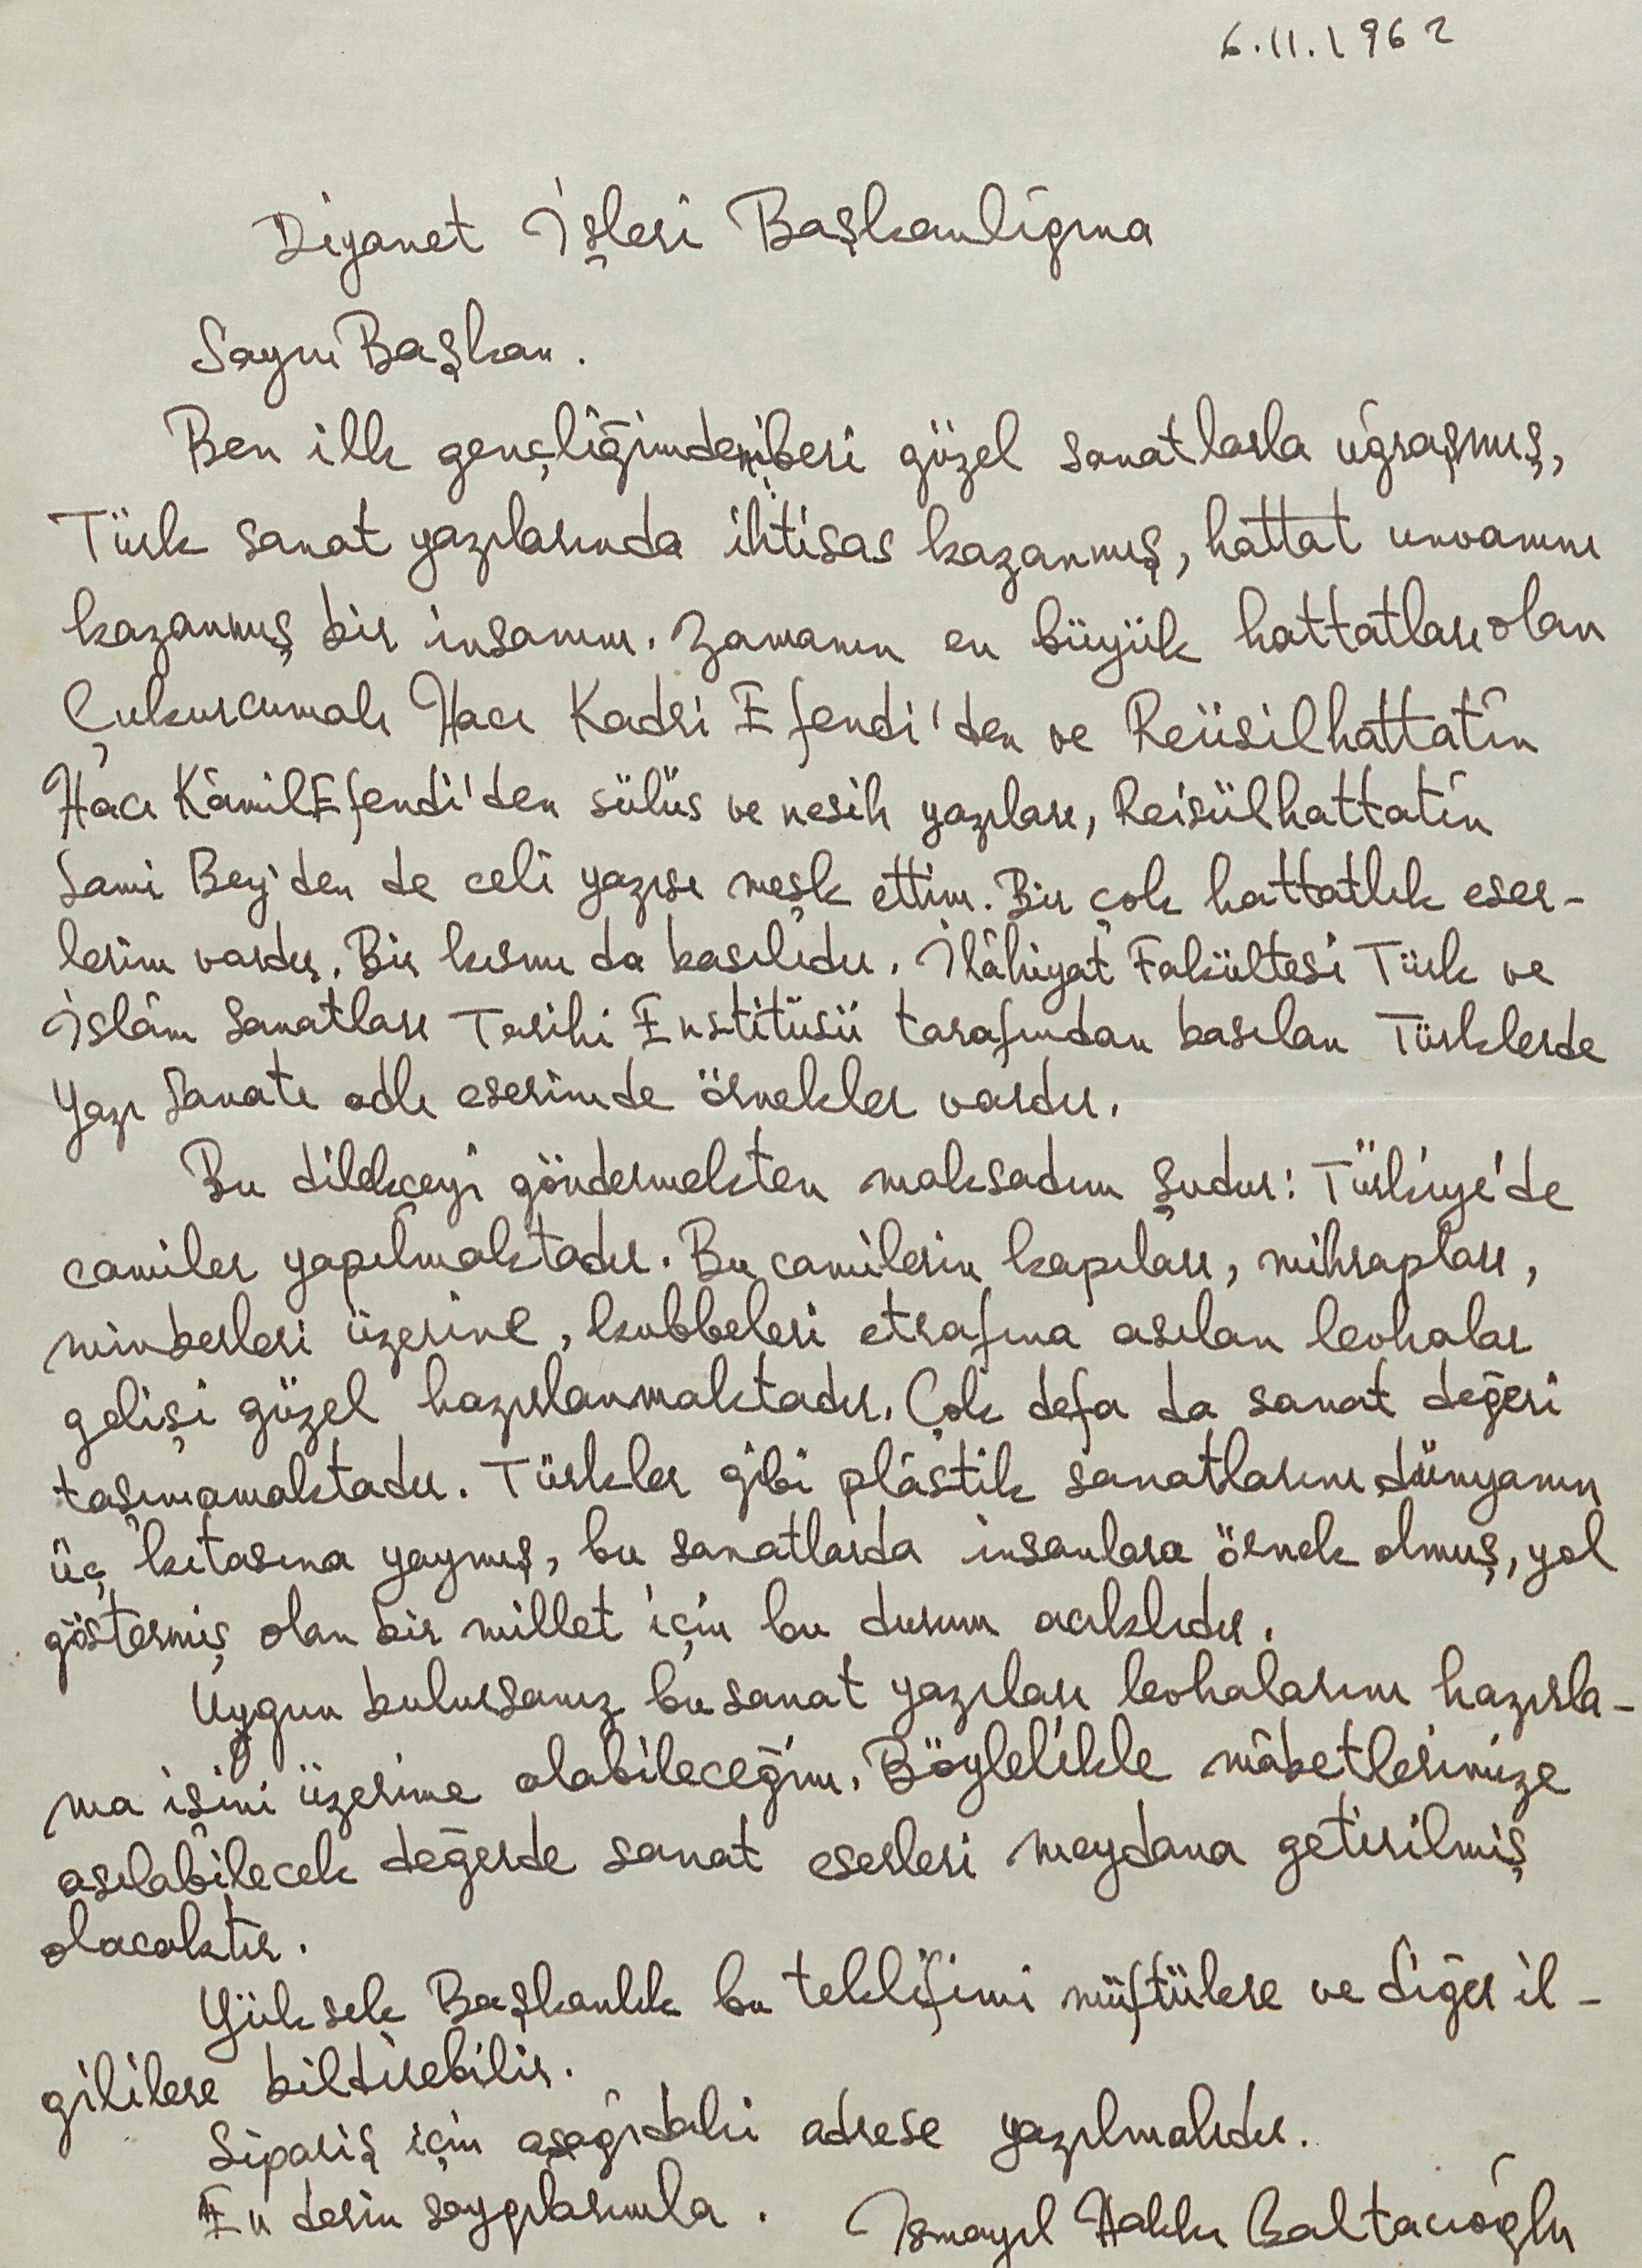 6.11.1962
Diyanet İşleri Başkanlığına
Sayın Başkan.
Ben ilk gençliğimdenberi güzel sanatlarla uğraşmış,
Türk sanat yazılarında ihtisas kazanmış, hattat unvanını
kazanmış bir insanım. Zamanın en büyük hattatları olan
Çukurcumalı Hacı Kadri Efendi'den ve Reiisilhattatîn
Hacı Kâmil Efendi'den sülüs ve nesih yazıları, Reisülhattatîn
Sami Bey'den de celi yazısı meşk ettim. Bir çok hattatlık eser-
lerim vardır. Bir kısmı da basılıdır. İlâhiyat Fakültesi Türk ve
İslâm Sanatları Tarihi Enstitüsü tarafından basılan Türklerde
Yazı Sanatı adlı eserimde örnekler vardır.
Bu dilekçeyi göndermekten maksadım şudur: Türkiye'de
camiler yapılmaktadır. Bu camilerin kapıları, mihrapları,
minberleri üzerine, kubbeleri etrafına asılan levhalar
gelişi güzel hazırlanmaktadır. Çok defa da sanat değeri
taşımamaktadır. Türkler gibi plâstik sanatlarını dünyanın
üç kıtasına yaymış, bu sanatlarda insanlara örnek olmuş, yol
göstermiş olan bir millet için bu durum acıklıdır.
Uygun bulursanız bu sanat yazıları levhalarını hazırla-
ma işini üzerime alabileceğim. Böylelikle mâbetlerimize
asılabilecek değerde sanat eserleri meydana getirilmiş
olacaktır.
Yüksek Başkanlık bu teklifimi müftülere ve diğer il-
gililere bildirebilir.
Sipariş için aşağıdaki adrese yazılmalıdır.
En derin saygılarımla. Ismayıl Hakkı Baltacıoğlu